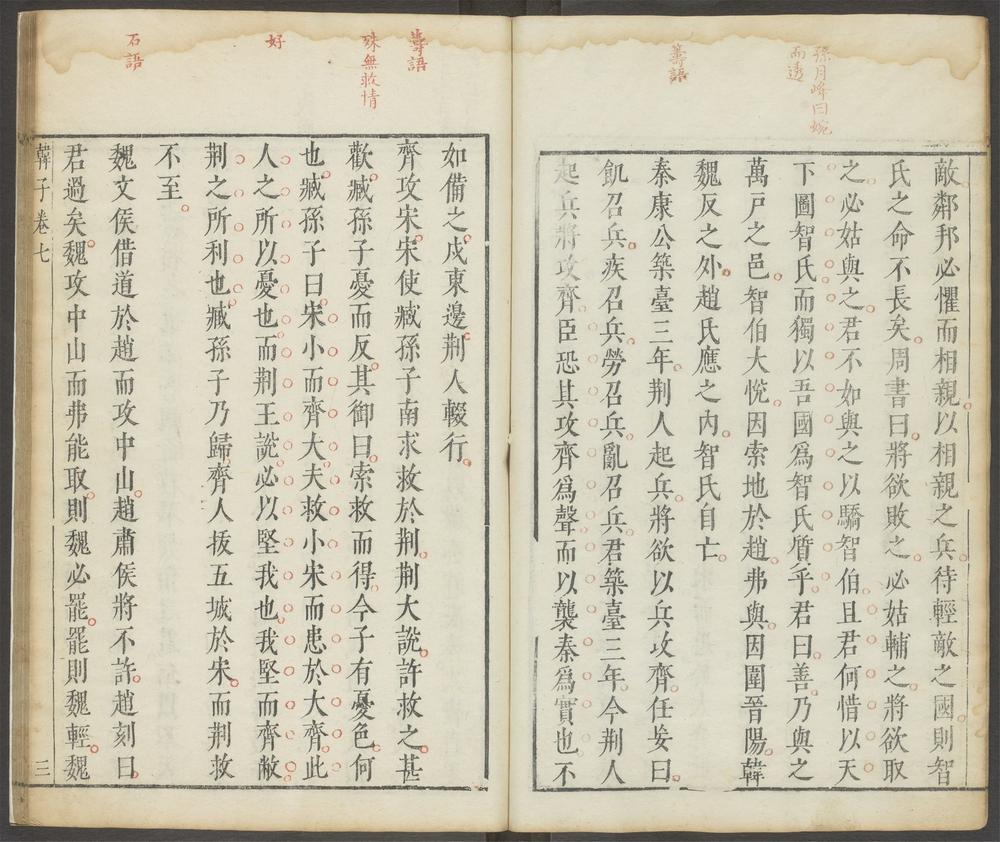 孫月峰曰婉
而透
籌語
敵鄰邦必懼而相親以相親之兵待輕敵之國則智
氏之命不長矣周書曰將欲敗之必姑輔之將欲取
之必姑與之君不如與之以驕智伯且君何惜以天
下圖智氏而獨以吾國爲智氏質乎君曰善乃與之
萬戶之邑智伯大悅因索地於趙弗與因圍晉陽韓
魏反之外趙氏應之內智氏自亡
秦康公築臺三年荆人起兵將欲以兵攻齊任妄曰
飢召兵疾召兵勞召兵亂召兵君築臺三年今荆人
起兵將攻齊臣恐其攻齊爲聲而以襲秦爲實也不
籌語
殊無救情
好
石語
如備之戍東邊荆人輟行
齊攻宋宋使臧孫子南求救於荆荆大說許救之甚
歡臧孫子憂而反其御曰索救而得今子有憂色何
也臧孫子曰宋小而齊大夫救小宋而患於大齊此
人之所以憂也而荆王說必以堅我也我堅而齊敝
荆之所利也臧孫子乃歸齊人拔五城於宋而荆救
不至
魏文侯借道於趙而攻中山趙肅侯將不許趙刻曰
君過矣魏攻中山而弗能取則魏必罷罷則魏輕魏
韓子卷七 三